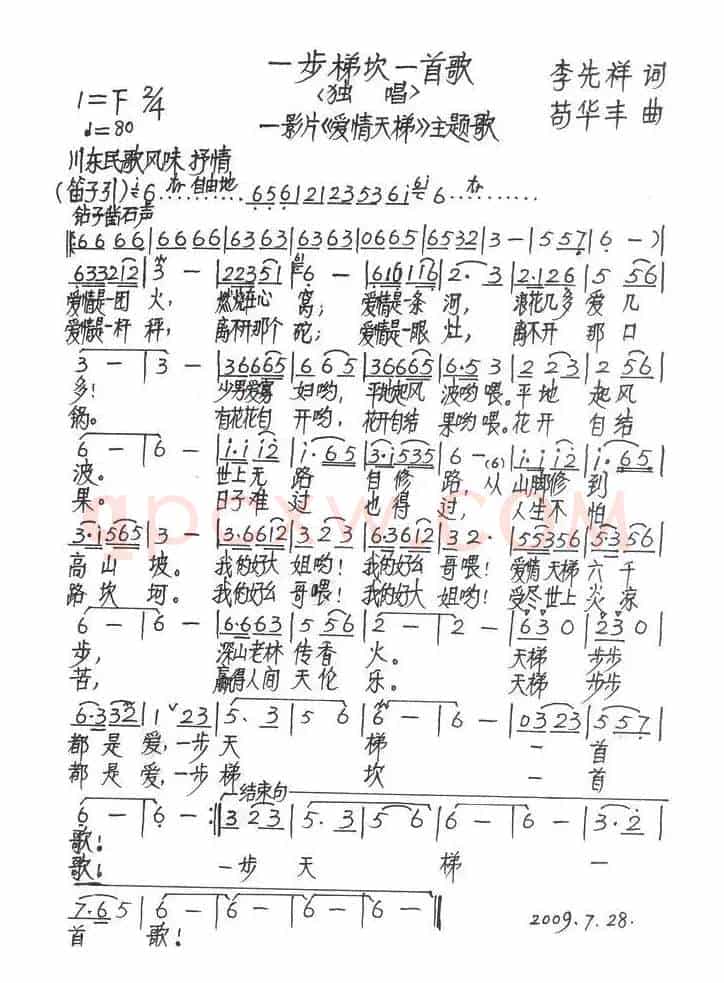 一步梯坎一首歌
〈独 唱〉
李先祥 词
苟华丰 曲
1=F 2/4
♩=80
—影片《爱情天梯》主题歌
川东民歌风味 抒情
(笛子引) i 6 自由地 6561212353 6i 6i 6
钻子凿石声
‖:6666|6666|6363|6363|0665|6532|3 —|557|6 —)
633212|3 —|22351|6 —|610116|2· 3|2·126|5 56|
爱情是一团 火, 燃烧在心 窝; 爱情是一条 河, 浪花几多 爱 几
爱情是一杆 秤, 离不开那个 砣; 爱情是一眼 灶, 离不开 那 口
3 —|3 —|36665|6 65|36665|6·5 3|2 23|2 56|
多! 少男爱寡 妇哟, 平地起风 波哟喂。平地 起风
锅。 有花花自 开哟, 花开自结 果哟喂。花开 自结
6 —|6 —|i·i i2|i· 65|3·i535|6 —(6)|i·i i2|i· 65|
波。 世上无 路 自修 路,从 山脚修 到
果。 日子难 过 也得 过, 人生不 怕
3·i565|3 —|3·6612|3 23|6·3612|3 2·|55356|5·356|
高山 坡。 我的好大 姐哟! 我的好幺 哥喂! 爱情天梯 六千
路坎 坷。 我的好幺 哥喂! 我的好大 姐哟! 受尽世上 炎凉
6 —|6 —|6·663|5 56|2 —|2 —|63 0|23 0|
步, 深山老林 传香 火。 天梯 步步
苦, 赢得人间 天伦 乐。 天梯 步步
6·332|1 ˅ 23|5· 3|5 6|6 —|6 —|0323|557|
都是 爱,一步 天 梯 一 首
都是 爱,一步 梯 坎 一 首
结束句
6 —|6 —:‖3 23|5· 3|5 6|6 —|6 —|3· 2|
歌!
歌! 一步 天 梯 一
7·6 5|6 —|6 —|6 —|6 —‖
首 歌!
2009.7.28.
qpcxw.com